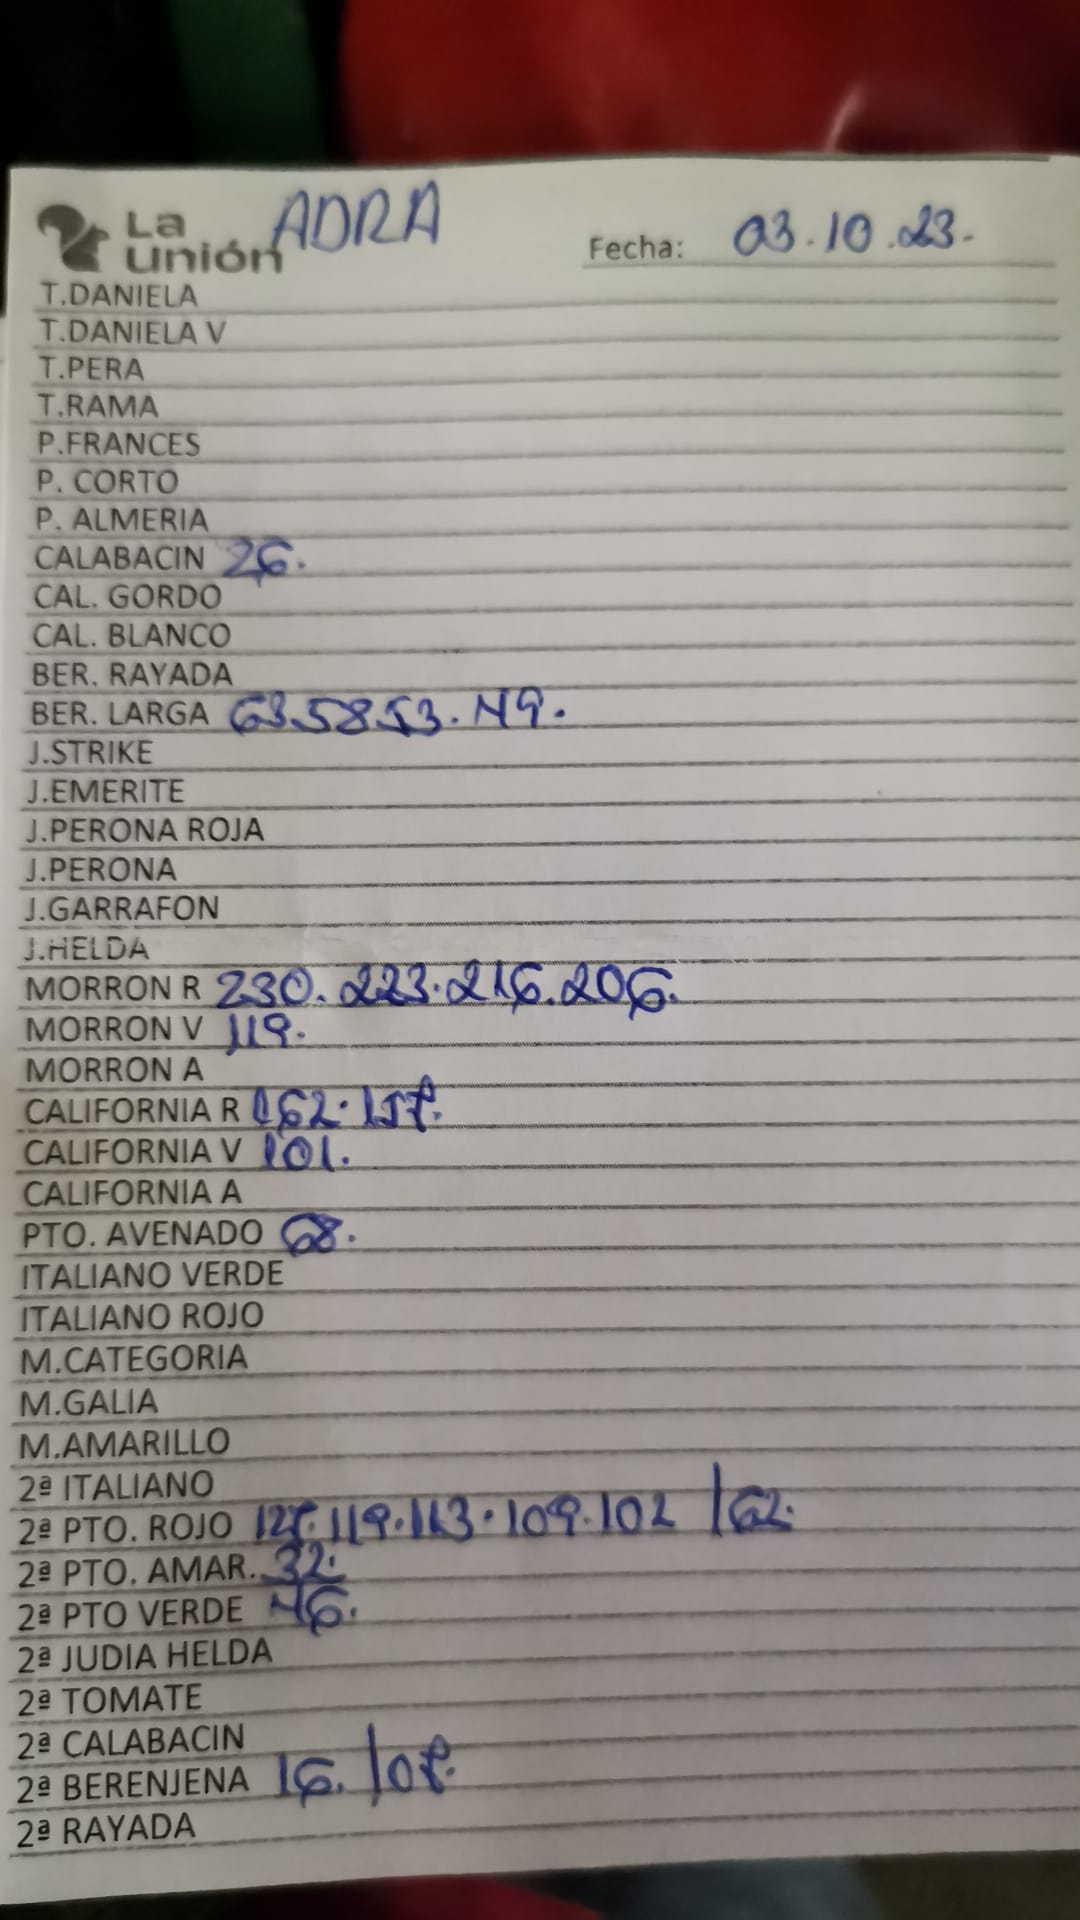 La unión ADRA Fecha: 03.10.23.
T.DANIELA
T.DANIELA V
T.PERA
T.RAMA
P.FRANCES
P. CORTO
P. ALMERIA
CALABACIN 26.
CAL. GORDO
CAL. BLANCO
BER. RAYADA
BER. LARGA 63.58.53.49.
J.STRIKE
J.EMERITE
J.PERONA ROJA
J.PERONA
J.GARRAFON
J.HELDA
MORRON R 230.223.216.206.
MORRON V 119.
MORRON A
CALIFORNIA R 162.157.
CALIFORNIA V 101.
CALIFORNIA A
PTO. AVENADO 68.
ITALIANO VERDE
ITALIANO ROJO
M.CATEGORIA
M.GALIA
M.AMARILLO
2ª ITALIANO
2ª PTO. ROJO 127.119.113.109.102 /62.
2ª PTO. AMAR. 32.
2ª PTO VERDE 46.
2ª JUDIA HELDA
2ª TOMATE
2ª CALABACIN
2ª BERENJENA 16. /07.
2ª RAYADA